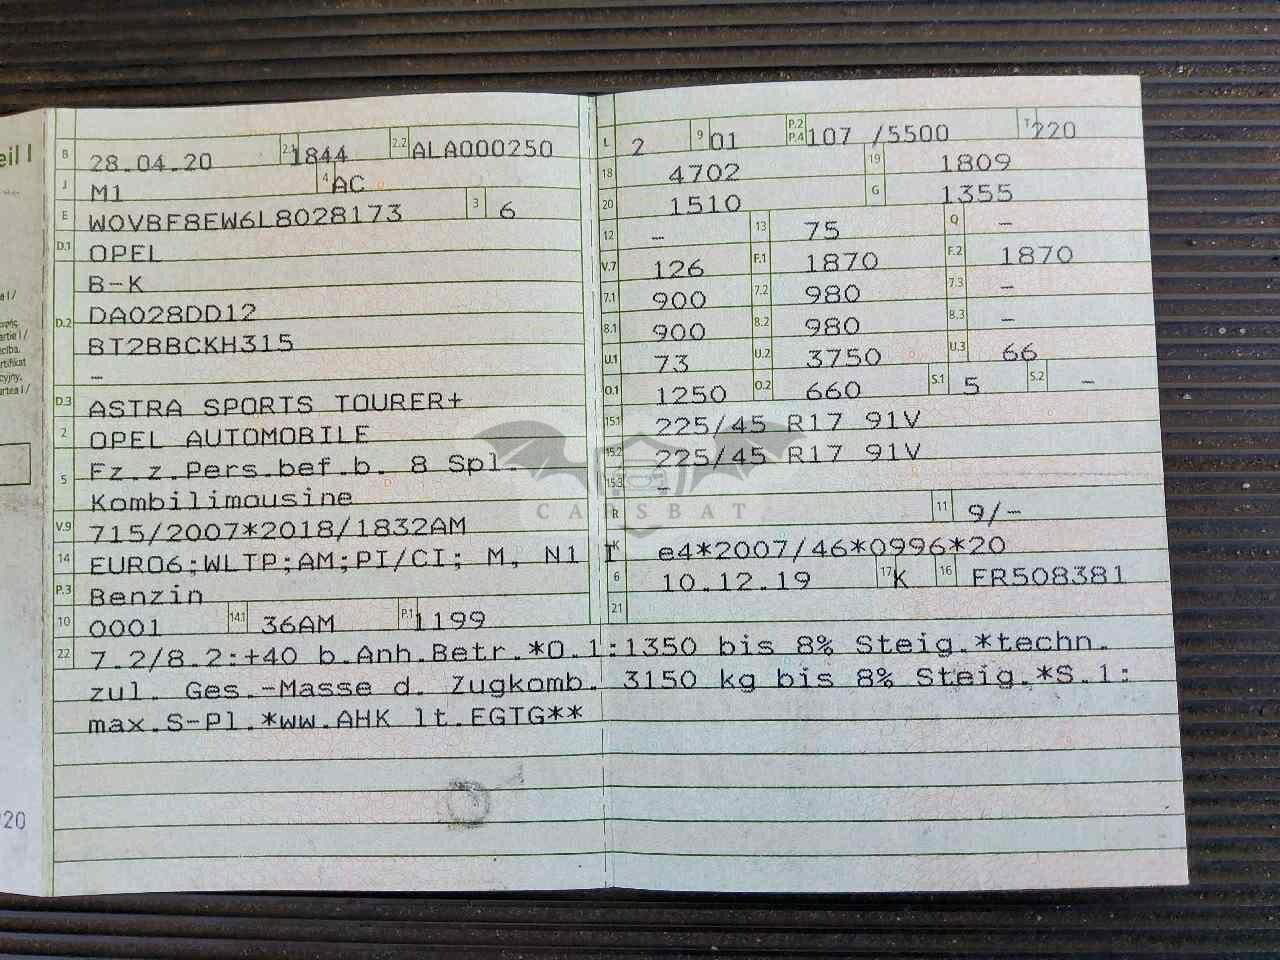 eil I
B 28.04.20 2.1 1844 2.2 ALA000250
J M1 4 AC
E W0VBF8EW6L8028173 3 6
D.1 OPEL
B-K
D.2 DA028DD12
BT2BBCKH315
–
D.3 ASTRA SPORTS TOURER+
2 OPEL AUTOMOBILE
5 Fz.z.Pers.bef.b. 8 Spl.
Kombilimousine
V.9 715/2007*2018/1832AM
14 EURO6;WLTP;AM;PI/CI; M, N1 I
P.3 Benzin
10 0001 14.1 36AM P.1 1199
L 2 9 01 P.2 P.4 107 /5500 T 220
18 4702 19 1809
20 1510 G 1355
12 – 13 75 Q –
V.7 126 F.1 1870 F.2 1870
7.1 900 7.2 980 7.3 –
8.1 900 8.2 980 8.3 –
U.1 73 U.2 3750 U.3 66
O.1 1250 O.2 660 S.1 5 S.2 –
15.1 225/45 R17 91V
15.2 225/45 R17 91V
15.3 –
CARSBAT
R 11 9/–
K e4*2007/46*0996*20
6 10.12.19 17 K 16 FR508381
21
22 7.2/8.2:+40 b.Anh.Betr.*O.1:1350 bis 8% Steig.*techn.
zul. Ges.-Masse d. Zugkomb. 3150 kg bis 8% Steig.*S.1:
max.S-Pl.*ww.AHK lt.EGTG**
20